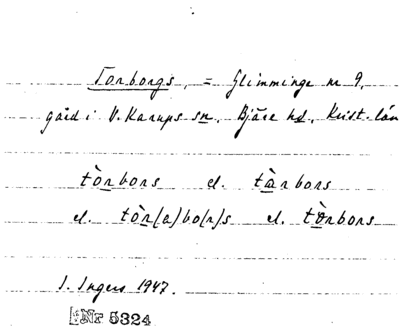 Torborgs, = Glimminge nr 9,
gård i V. Karups sn, Bjäre hd, Krist. län
tòrbors el. tàrbors
el. tòr(a)bo(r)s el. tòrbors
I. Ingers 1947.
Nr 5324